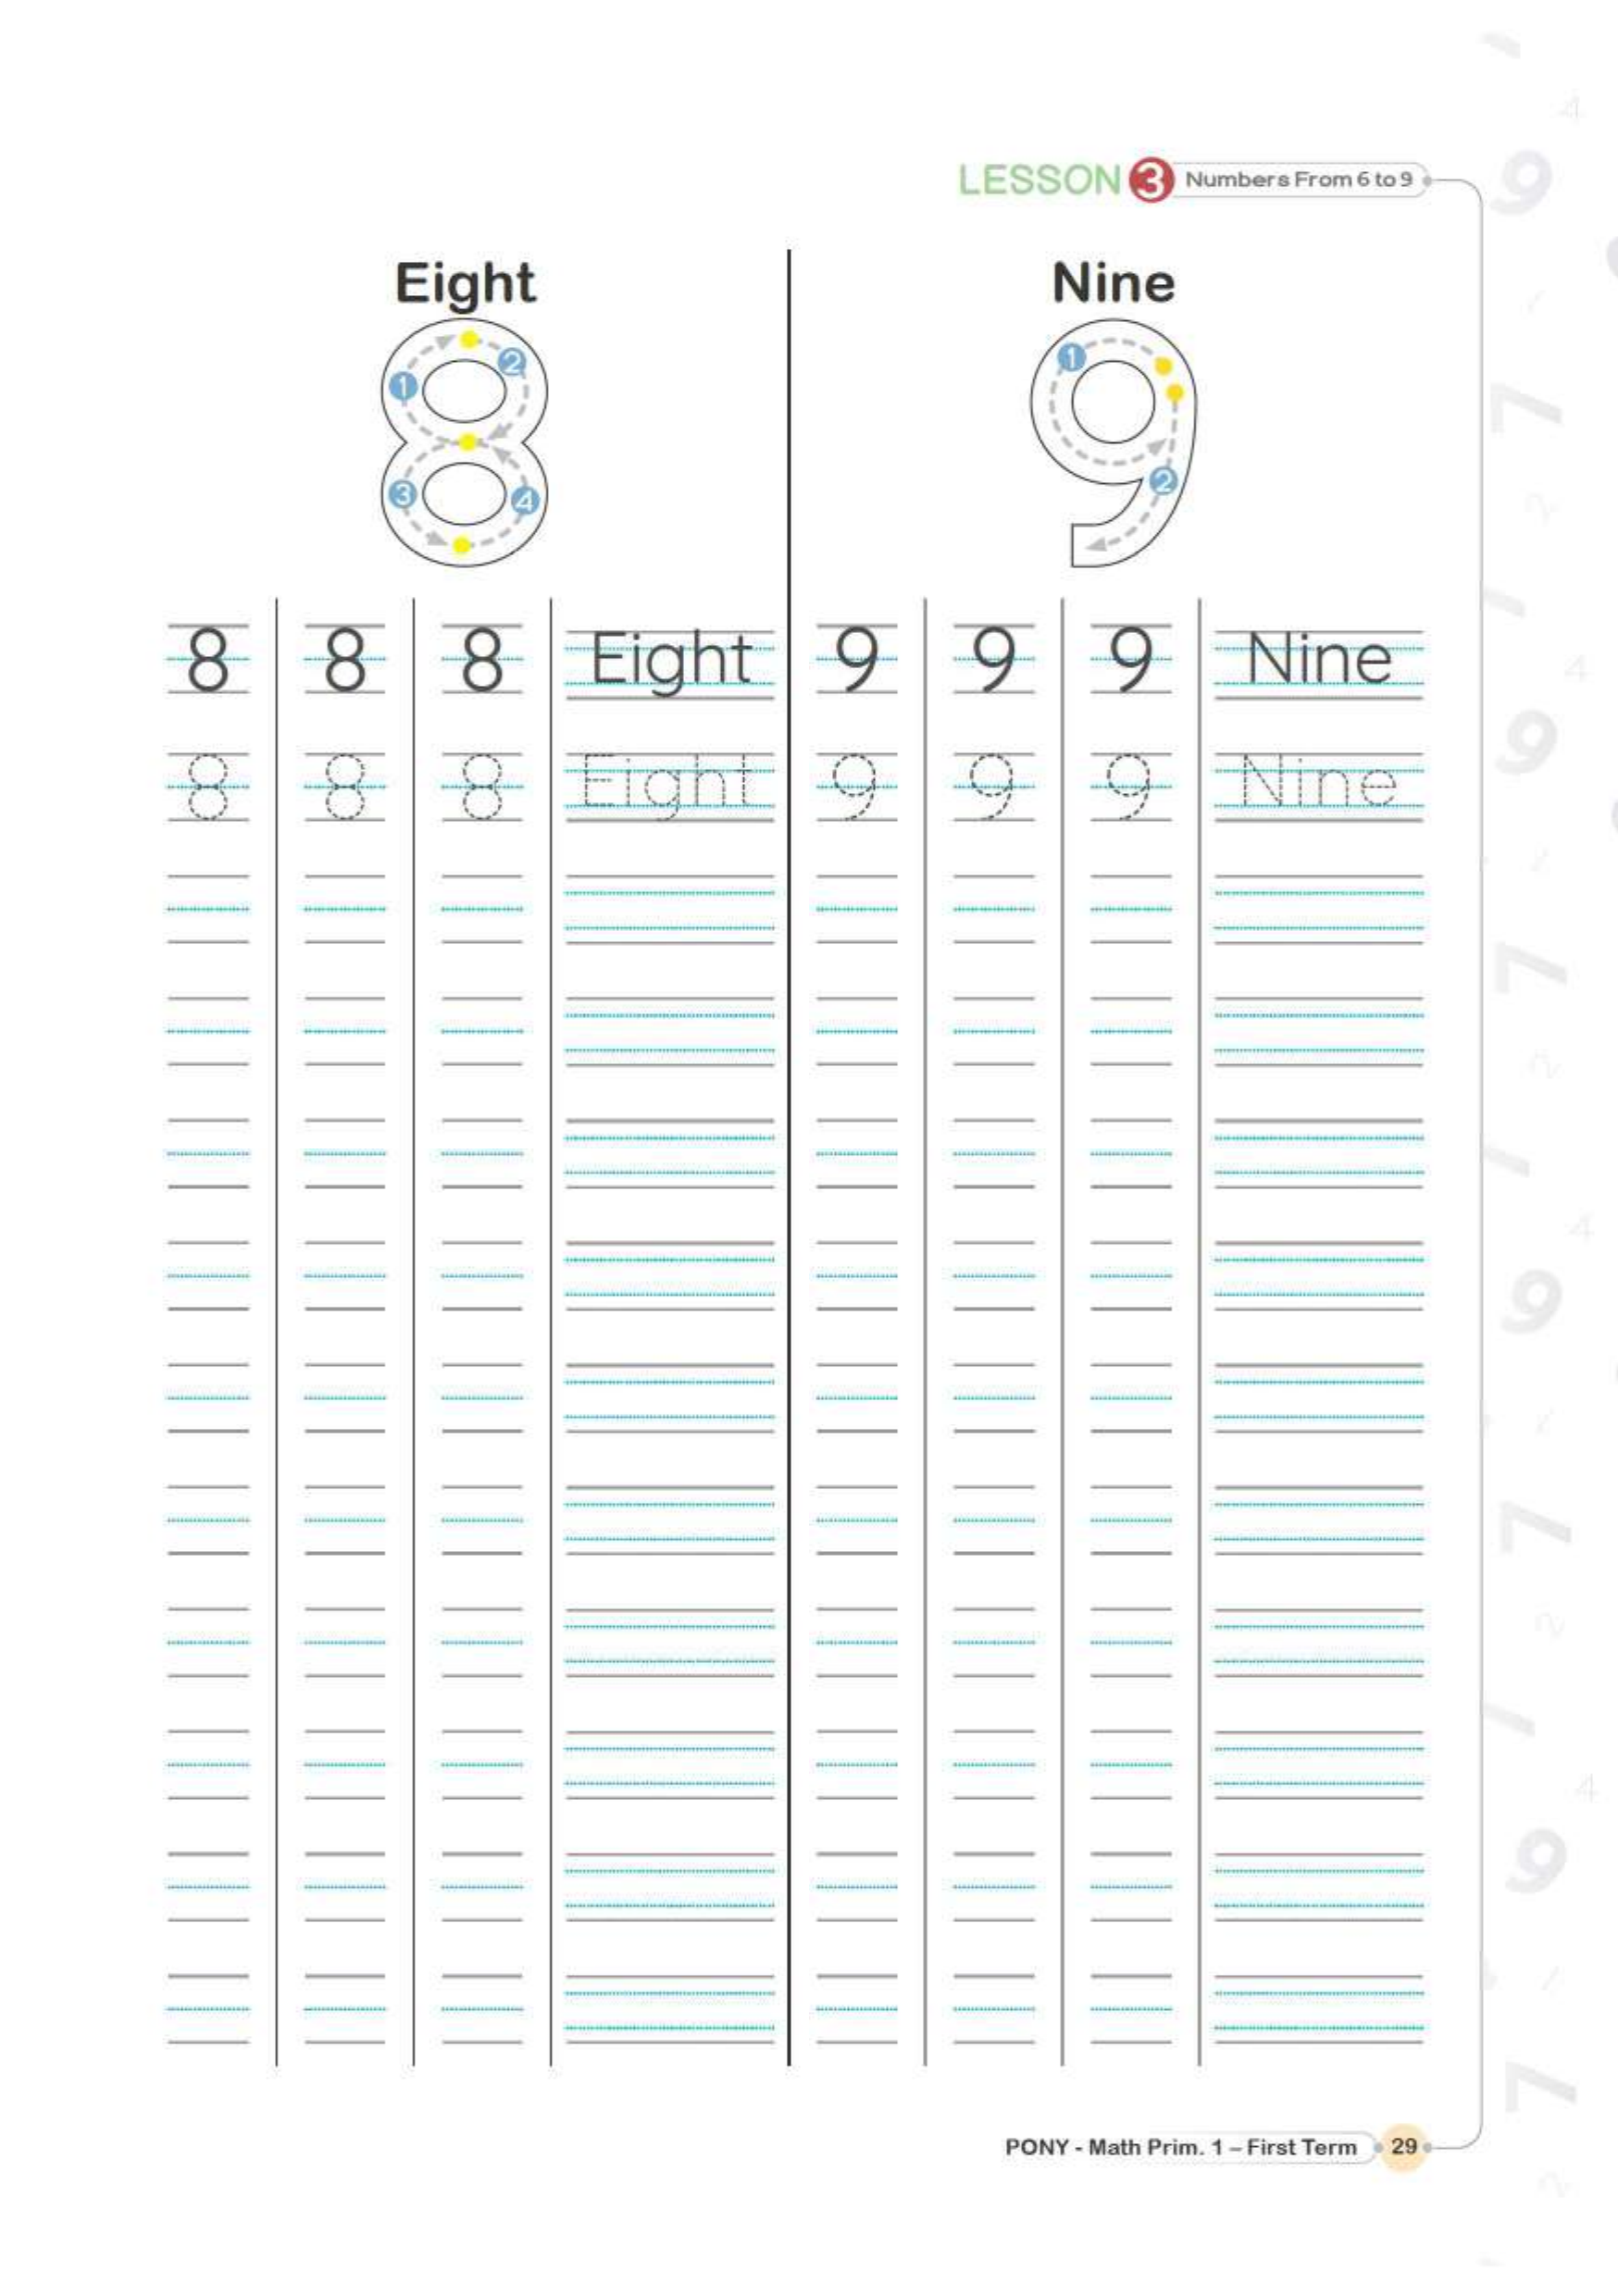 LESSON 3 Numbers From 6 to 9
Eight Nine
1 2 3 4 1 2
8 8 8 Eight 9 9 9 Nine
8 8 8 Eight 9 9 9 Nine
PONY - Math Prim. 1 – First Term 29